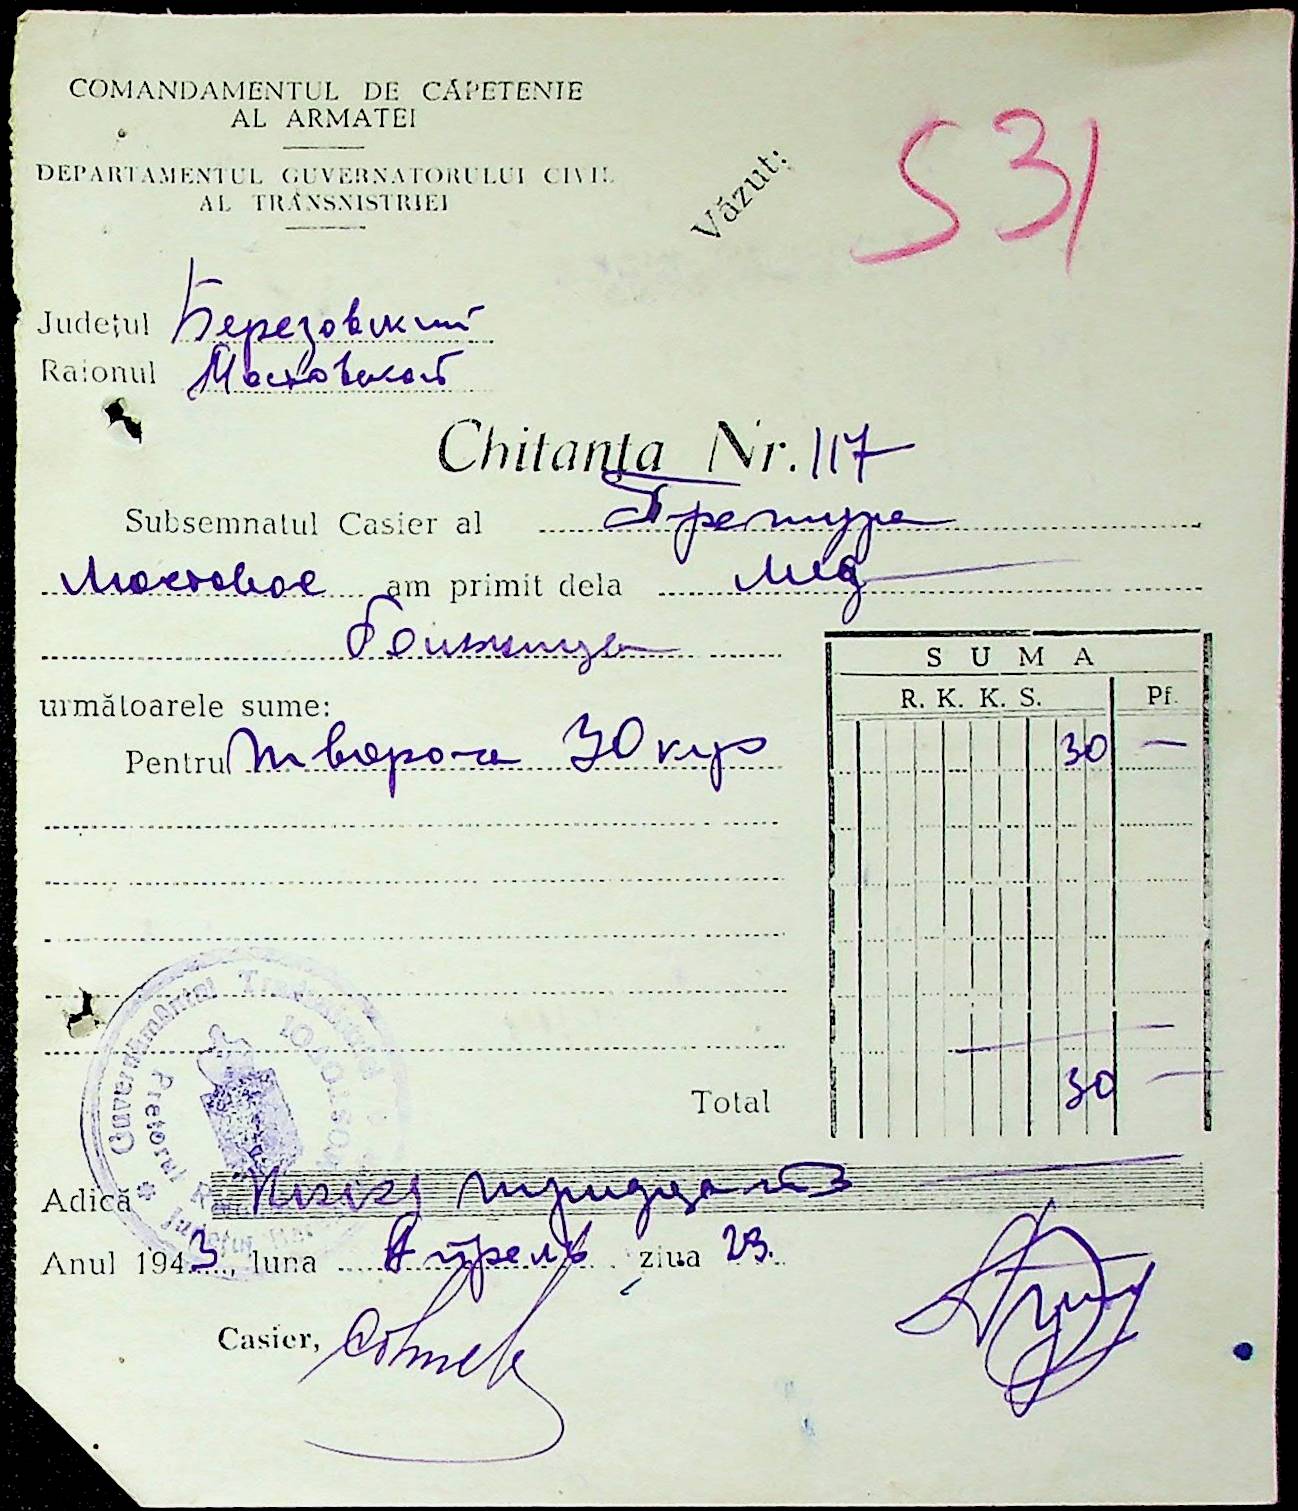 COMANDAMENTUL DE CĂPETENIE
AL ARMATEI
DEPARTAMENTUL GUVERNATORULUI CIVIL
AL TRANSNISTRIEI
Văzut:
531
Județul Березовский
Raionul Мостовской
Chitanța Nr. 117
Subsemnatul Casier al Претура
Мостовое am primit dela
următoarele sume:
SUMA
R. K. K. S. Pf.
Pentru творога 30 кур 30 —
Total 30 —
Adică тридцать
Anul 1943, luna Апрель ziua 23.
Casier,
Guvernământul Transnistriei
Pretorul